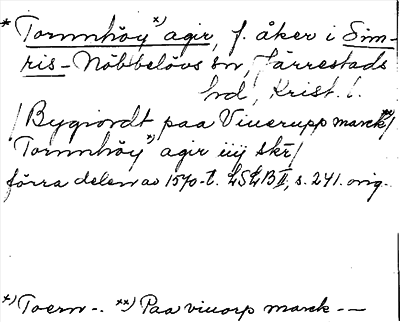 * Tormnhöy*) agir, f. åker i Sim-
ris-Nöbbelövs sn, Järrestads
hd, Krist. l.
/Bygiordt paa Viuerupp marck**)/
Tormnhöy*) agir iiij skr/
förra delen av 1570-t. LSLB II, s. 241. orig.
*) Toern-. **) Paa viuorp marck --